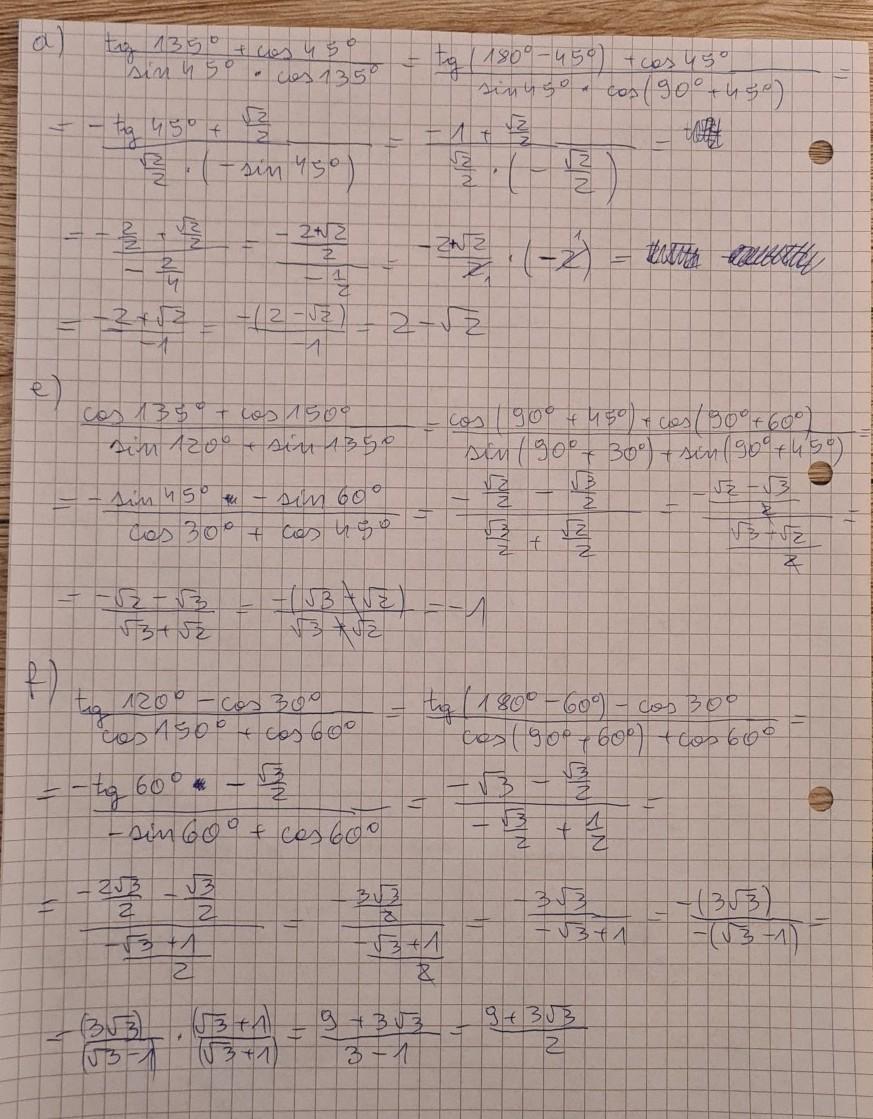 d) (tg 135° + cos 45°)/(sin 45° · cos 135°) = (tg(180° - 45°) + cos 45°)/(sin 45° · cos(90° + 45°)) =
= (-tg 45° + √2/2)/(√2/2 · (-sin 45°)) = (-1 + √2/2)/(√2/2 · (-√2/2)) =
= (-2/2 + √2/2)/(-2/4) = ((-2+√2)/2)/(-1/2) = (-2+√2)/2 · (-2) =
= (-2+√2)/-1 = -(2-√2)/-1 = 2-√2
e)
(cos 135° + cos 150°)/(sin 120° + sin 135°) = (cos(90° + 45°) + cos(90° + 60°))/(sin(90° + 30°) + sin(90° + 45°)) =
= (-sin 45° - sin 60°)/(cos 30° + cos 45°) = (-√2/2 - √3/2)/(√3/2 + √2/2) = ((-√2 - √3)/2)/((√3+√2)/2) =
= (-√2 - √3)/(√3+√2) = -(√3+√2)/(√3+√2) = -1
f)
(tg 120° - cos 30°)/(cos 150° + cos 60°) = (tg(180° - 60°) - cos 30°)/(cos(90° + 60°) + cos 60°) =
= (-tg 60° - √3/2)/(-sin 60° + cos 60°) = (-√3 - √3/2)/(-√3/2 + 1/2) =
= (-2√3/2 - √3/2)/((-√3+1)/2) = (-3√3/2)/((-√3+1)/2) = -3√3/(-√3+1) = -(3√3)/-(√3-1) =
= (3√3)/(√3-1) · (√3+1)/(√3+1) = (9+3√3)/(3-1) = (9+3√3)/2